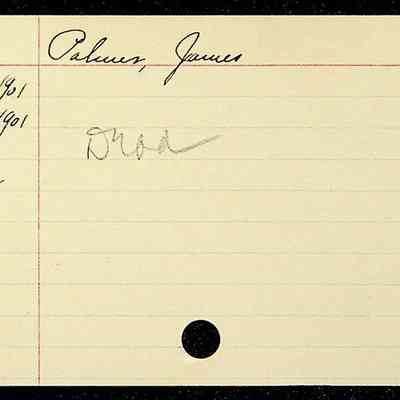 Palmer, James
1901
1901